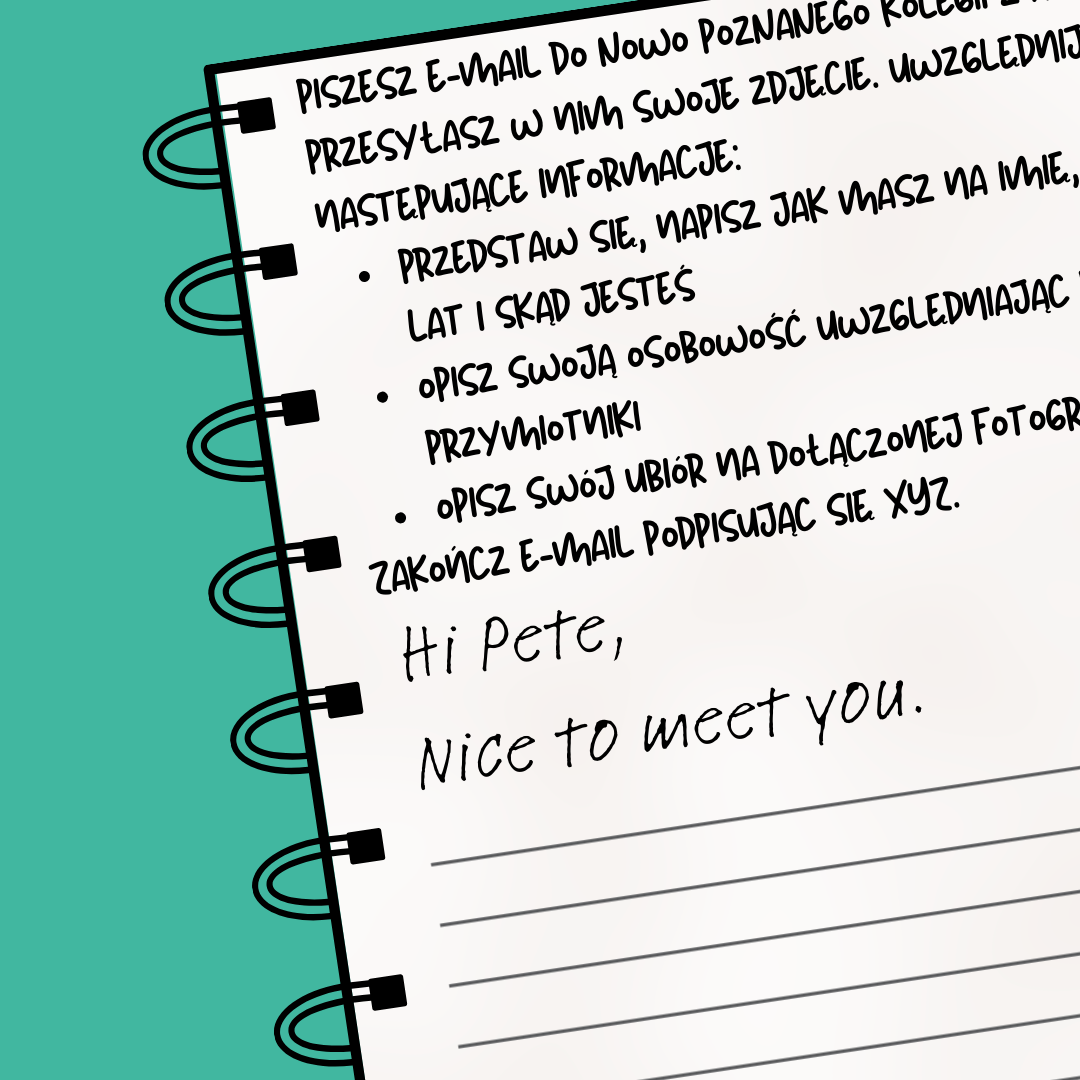 PISZESZ E-MAIL DO NOWO POZNANEGO KOLEGI Z
PRZESYŁASZ W NIM SWOJE ZDJĘCIE. UWZGLĘDNIJ
NASTĘPUJĄCE INFORMACJE:
• PRZEDSTAW SIĘ, NAPISZ JAK MASZ NA IMIĘ,
LAT I SKĄD JESTEŚ
• OPISZ SWOJĄ OSOBOWOŚĆ UWZGLĘDNIAJĄC
PRZYMIOTNIKI
• OPISZ SWÓJ UBIÓR NA DOŁĄCZONEJ FOTOGR
ZAKOŃCZ E-MAIL PODPISUJĄC SIĘ XYZ.
Hi Pete,
Nice to meet you.